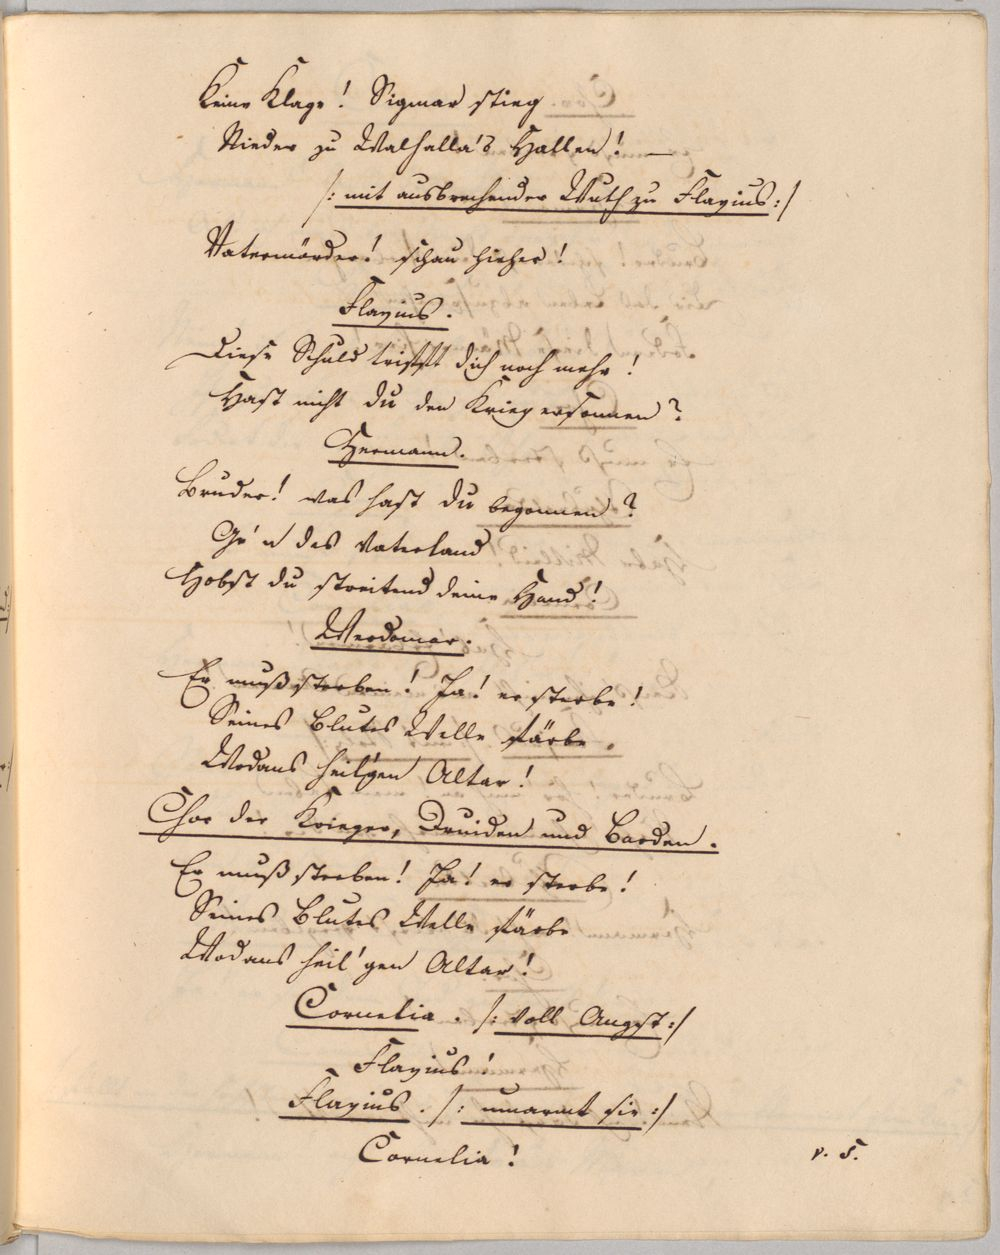 Keine Klage! Sigmar stieg
Nieder zu Walhalla's Hallen! —
/: mit ausbrechender Wuth zu Flavius :/
Vatermörder! schau hieher!
Flavius.
Diese Schuld trifft dich noch mehr!
Hast nicht du den Krieg ersonnen?
Hermann.
Bruder! was hast du begonnen?
Ge'n das Vaterland
Hobst du streitend deine Hand!
Werdomar.
Er muß sterben! Ja! er sterbe!
Seines Blutes Welle färbe
Wodans heil'gen Altar!
Chor der Krieger, Druiden und Barden.
Er muß sterben! Ja! er sterbe!
Seines Blutes Welle färbe
Wodans heil'gen Altar!
Cornelia. /: voll Angst :/
Flavius!
Flavius. /: umarmt sie :/
Cornelia!
v. S.